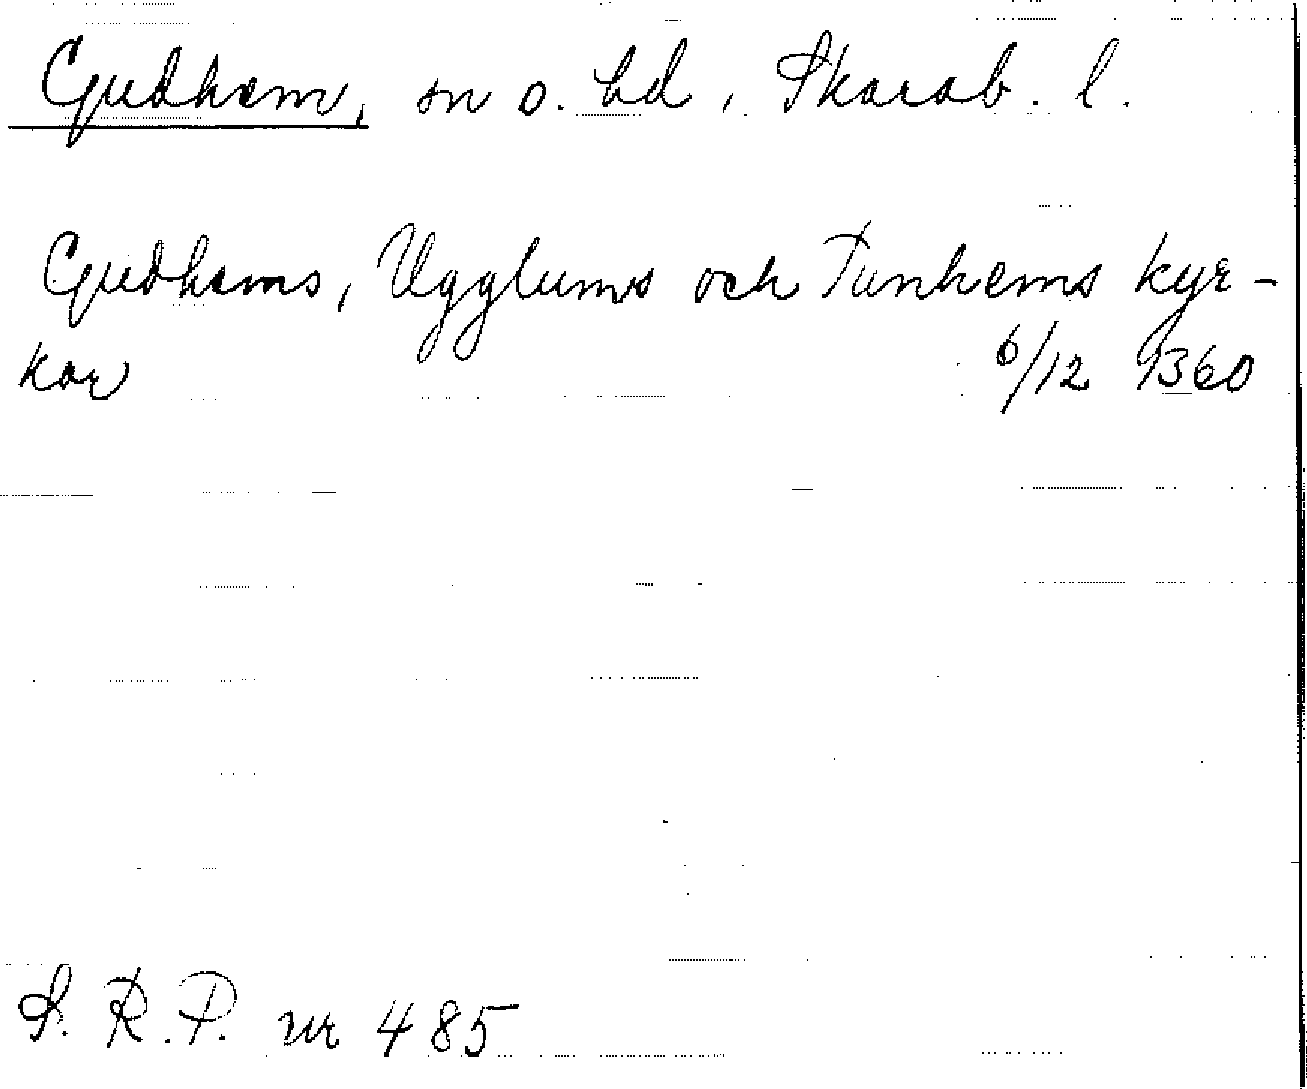 Gudhem, sn o. hd, Skarab. l.
Gudhems, Ugglums och Tunhems kyr-
kor 6/12 1360
S. R. P. nr 485